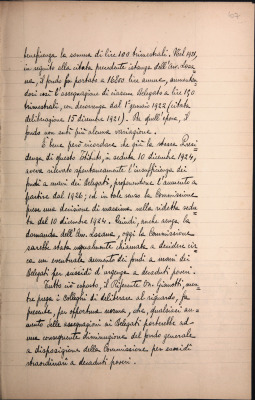 beneficenza la somma di lire 100 trimestrali. Nel 1921,
in seguito alla citata precedente istanza dell'On. Losa
na, il fondo fu portato a 16800 lire annue, aumentan
dosi così l'assegnazione di ciascun Delegato a lire 150
trimestrali, con decorrenza dal 1° gennaio 1922 (citata
deliberazione 15 dicembre 1921). Da quell'epoca, il
fondo non subì più alcuna variazione.
È bene però ricordare che già la stessa Presi
denza di questo Istituto, in seduta 10 dicembre 1924,
aveva rilevato spontaneamente l'insufficienza dei
fondi a mani dei Delegati, proponendone l'aumento a
partire dal 1926; ed in tale senso la Commissione
prese una decisione di massima nella ridetta sedu
ta del 10 dicembre 1924. Quindi, anche senza la
domanda dell'On. Losana, oggi la Commissione
sarebbe stata ugualmente chiamata a decidere cir
ca un eventuale aumento dei fondi a mani dei
Delegati per sussidi d'urgenza a decaduti poveri.
Tutto ciò esposto, il Riferente On. Gianotti, men
tre prega i Colleghi di deliberare al riguardo, fa
presente, per opportuna norma, che, qualsiasi au
mento delle assegnazioni ai Delegati porterebbe ad
una conseguente diminuzione del fondo generale
a disposizione della Commissione per sussidi
straordinari a decaduti poveri.